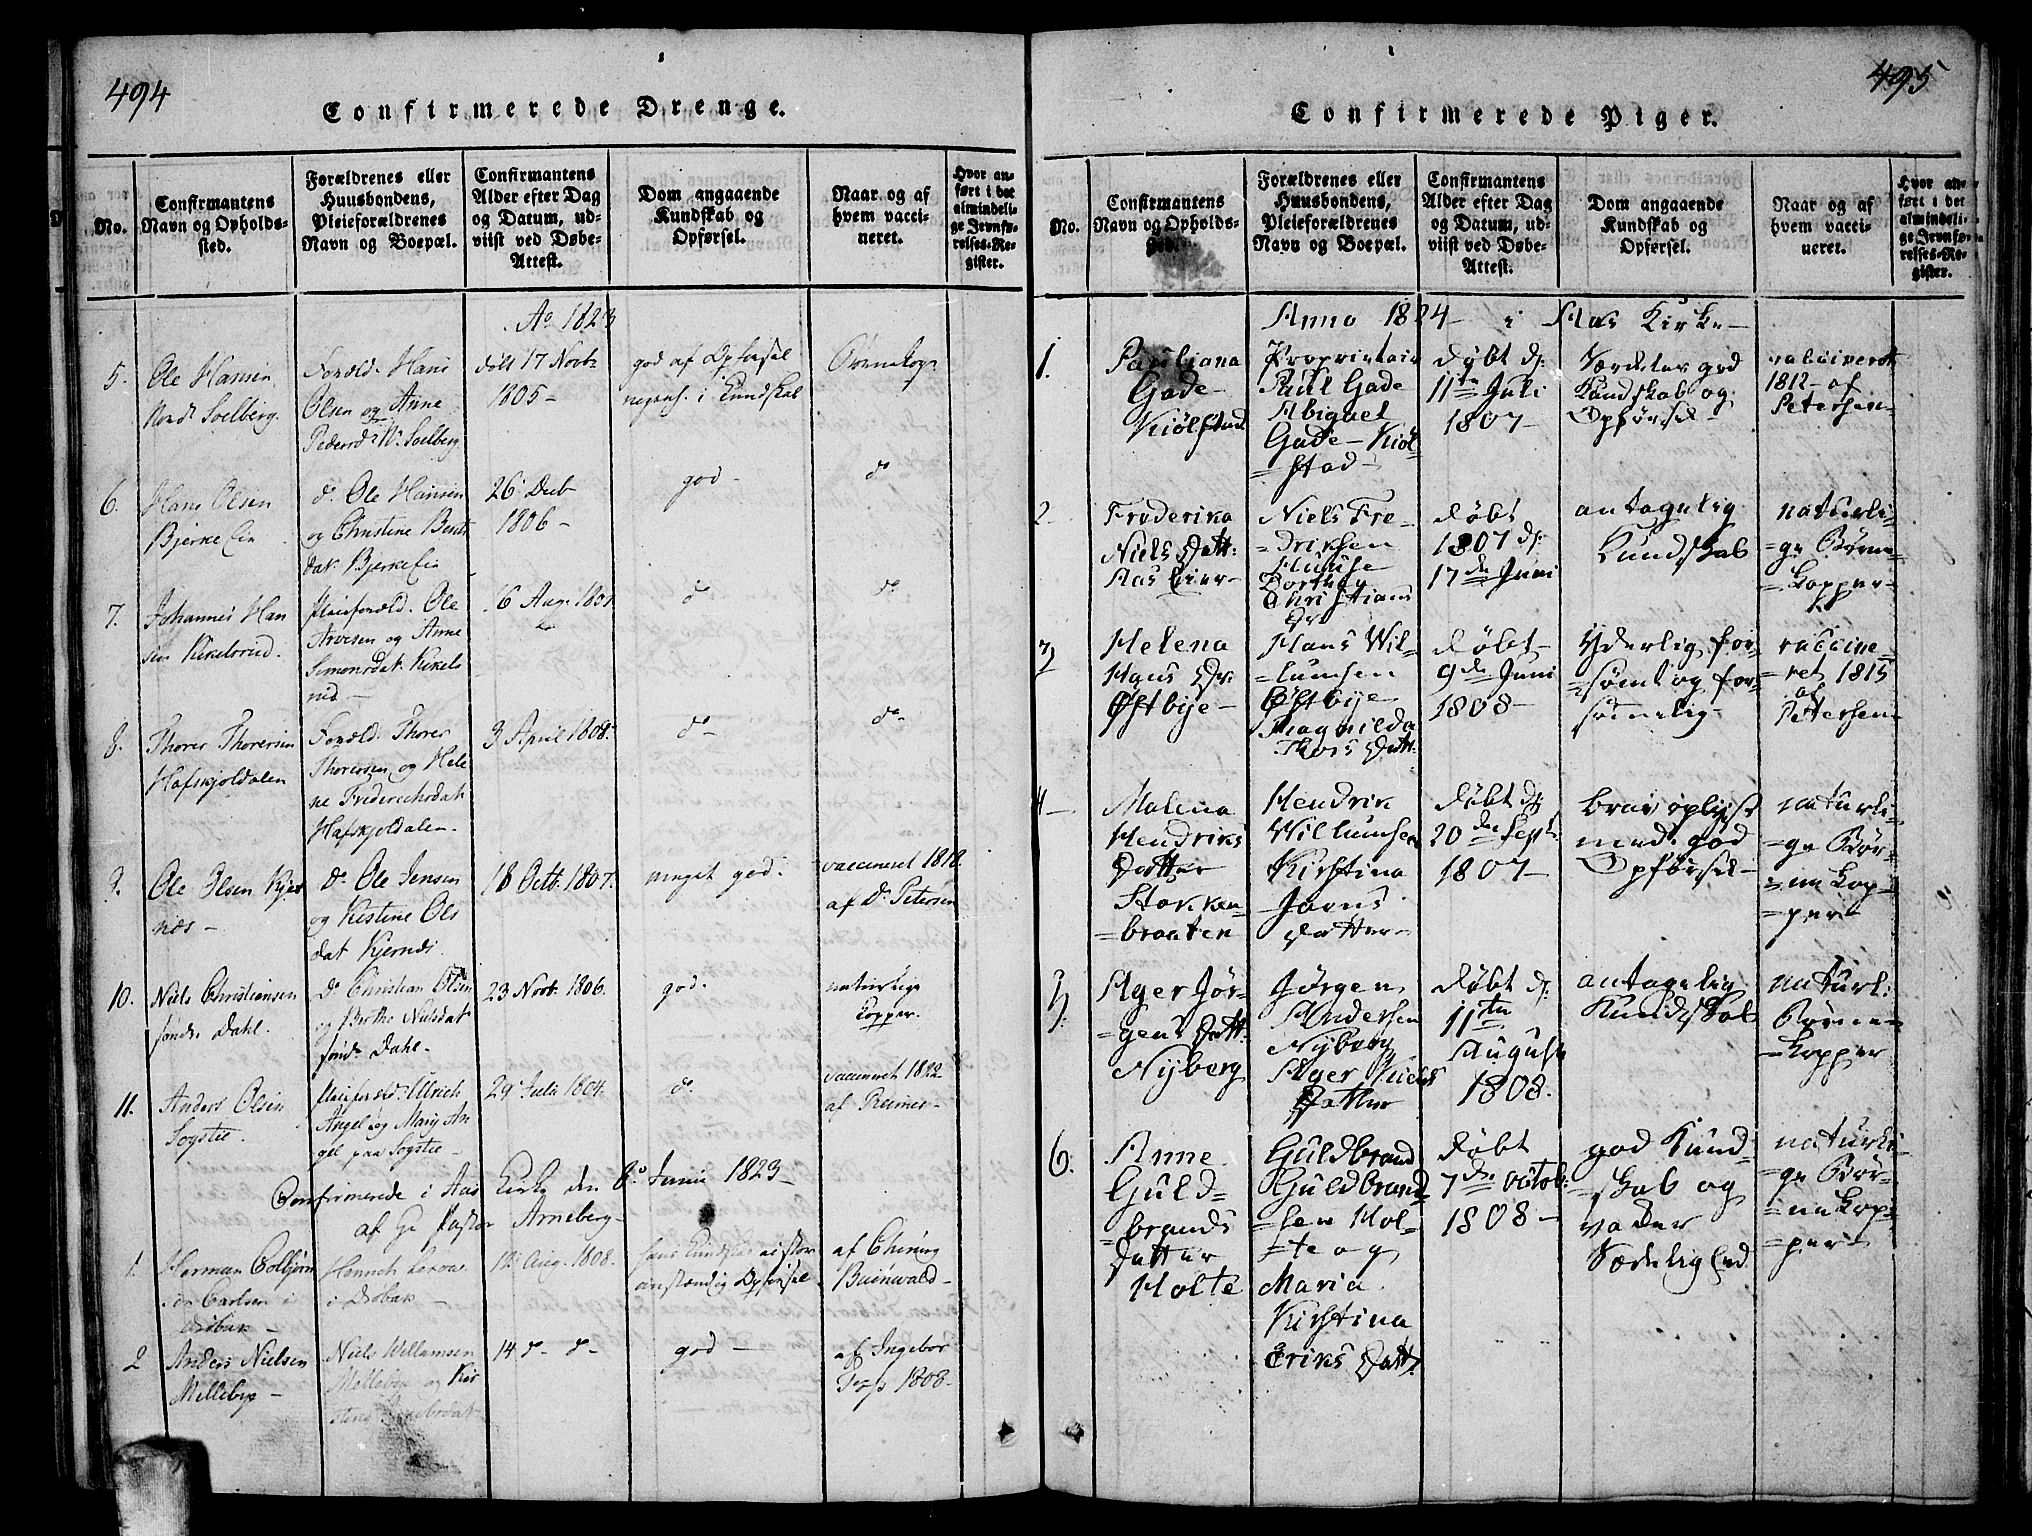 494
Confirmerede Drenge.
No.
Confirmantens
Navn og Opholds-
sted.
Forældrenes eller
Huusbondens,
Pleieforældrenes
Navn og Boepæl.
Confirmantens
Alder efter Dag
og Datum, ud-
viist ved Døbe-
Attest.
Dom angaaende
Kundskab og
Opførsel.
Naar og af
hvem vacci-
neret.
Hvor an-
ført i det
almindeli-
ge Jevnfø-
relses-Re-
gister.
Ao 1823
5.
Ole Hansen
Nord Soelberg.
Foræld. Hans
Olsen og Anne
Pedersd. N. Soelberg
døbt 17 Novbr
1805 -
god af Opførsel
i Kundskab
6.
Hans Olsen
Bjerke Eie
do Ole Hansen
og Christine Bents
dat. Bjerke Eie
26 Decb
1806 -
god -
do
7.
Johannes Han
sen Kikelsrud.
Pleieforæld. Ole
Arvesen og Anne
Simonsdat. Kikels
rud -
16 Aug. 1807
do
do
8.
Thorer Thorersen
Hafskjoldalen
Foræld. Thorer
Thorersen og Hele
ne Frederechsdat
Hafskjoldalen.
3 April 1808.
do -
do -
9.
Ole Olsen Kjer
næs -
do Ole Jensen
og Kestine Ols
dat Kjernæs.
18 Octb. 1807.
meget god.
vaccineret 1818
af Dr Petersen
10.
Niels Christiansen
søndr Dahl.
do Christian Olsen
og Berthe Nielsdat
søndr Dahl.
23 Novb. 1806.
god.
naturlige
Kopper.
11.
Anders Olsen
Sogstie.
Pleieforæld. Ulrich
Angel og Mary An
gel paa Sogstie -
29 Julii 1804.
do
vaccineret 1822
af
Confirmerede i Aas Kirke den 8de Junii 1823 -
af Pastor Arneberg -
1.
Herman Colbjørn
sen Carlsen i
Drøbak -
Hennich
i Drøbak -
12 Aug. 1808.
anstændig Opførsel
af Chirurg
2
Anders Nielsen
Mellebye -
Niels Willumsen
Mellebye og Kir
14 do - do -
god -
af Ingebor
1808 -
495
Confirmerede Piger.
No.
Confirmantens
Navn og Opholds-
sted.
Forældrenes eller
Huusbondens,
Pleieforældrenes
Navn og Boepæl.
Confirmantens
Alder efter Dag
og Datum, ud-
viist ved Døbe-
Attest.
Dom angaaende
Kundskab og
Opførsel.
Naar og af
hvem vacci-
neret.
Hvor an-
ført i det
almindeli-
ge Jevnfø-
relses-Re-
gister.
Anno 1824 - i Aas Kirke -
1.
Pauliana
Gade -
Kiølstad
Proprietair
Paul Gade
Abiguel
Gade - Kiøl
= stad -
Døbt d:
11te Juli
1807 -
Særdeles god
Kundskab og
Opførsel -
vacciveret
1812 - af
Petersen -
2.
Frederika
Niels Datt:
Aas Eier -
Niels Fre-
= driksen
Dorthea
Christians
Dr
Døbt
1807 d:
17de Juni
antagelig
Kundskab
naturli-
= ge Børne
= kopper -
3
Helena
Hans Dr:
Østbye -
Hans Wil-
= lumsen
Østbye -
Magnilda
Thors Datt:
Døbt -
9de Juni
1808 -
Yderlig for-
= sømt og for-
sømelig -
vaccine-
= ret 1815
af
Petersen
4 -
Malena
Hendriks
Datter
Stokken-
= braaten
Hendrik
Willumsen
Kirstina
Joens
Datter -
Døbt d:
20de Sept:
1807 -
brav oplyst
med god
Opførsel -
naturli-
= ge Bør-
= ne kop-
= per -
5.
Ager Jør-
= gens Datt:
Nyberg
Jørgen
Andersen
Nyberg
Ager Niels
Datter
Døbt d:
11te
August
1808.
antagelig
Kundskab
naturl:
Børne-
= kopper
6.
Anne
Guld-
brands
Datter
Holte
Guldbrand
Guldbrand-
= sen Hol-
= te og
Maria
Kirstina
Eriks Datt:
Døbt
7de octob:
1808 -
god Kund-
= skab og
Sædelighed
naturli-
= ge Bør-
= ne kop-
= per -